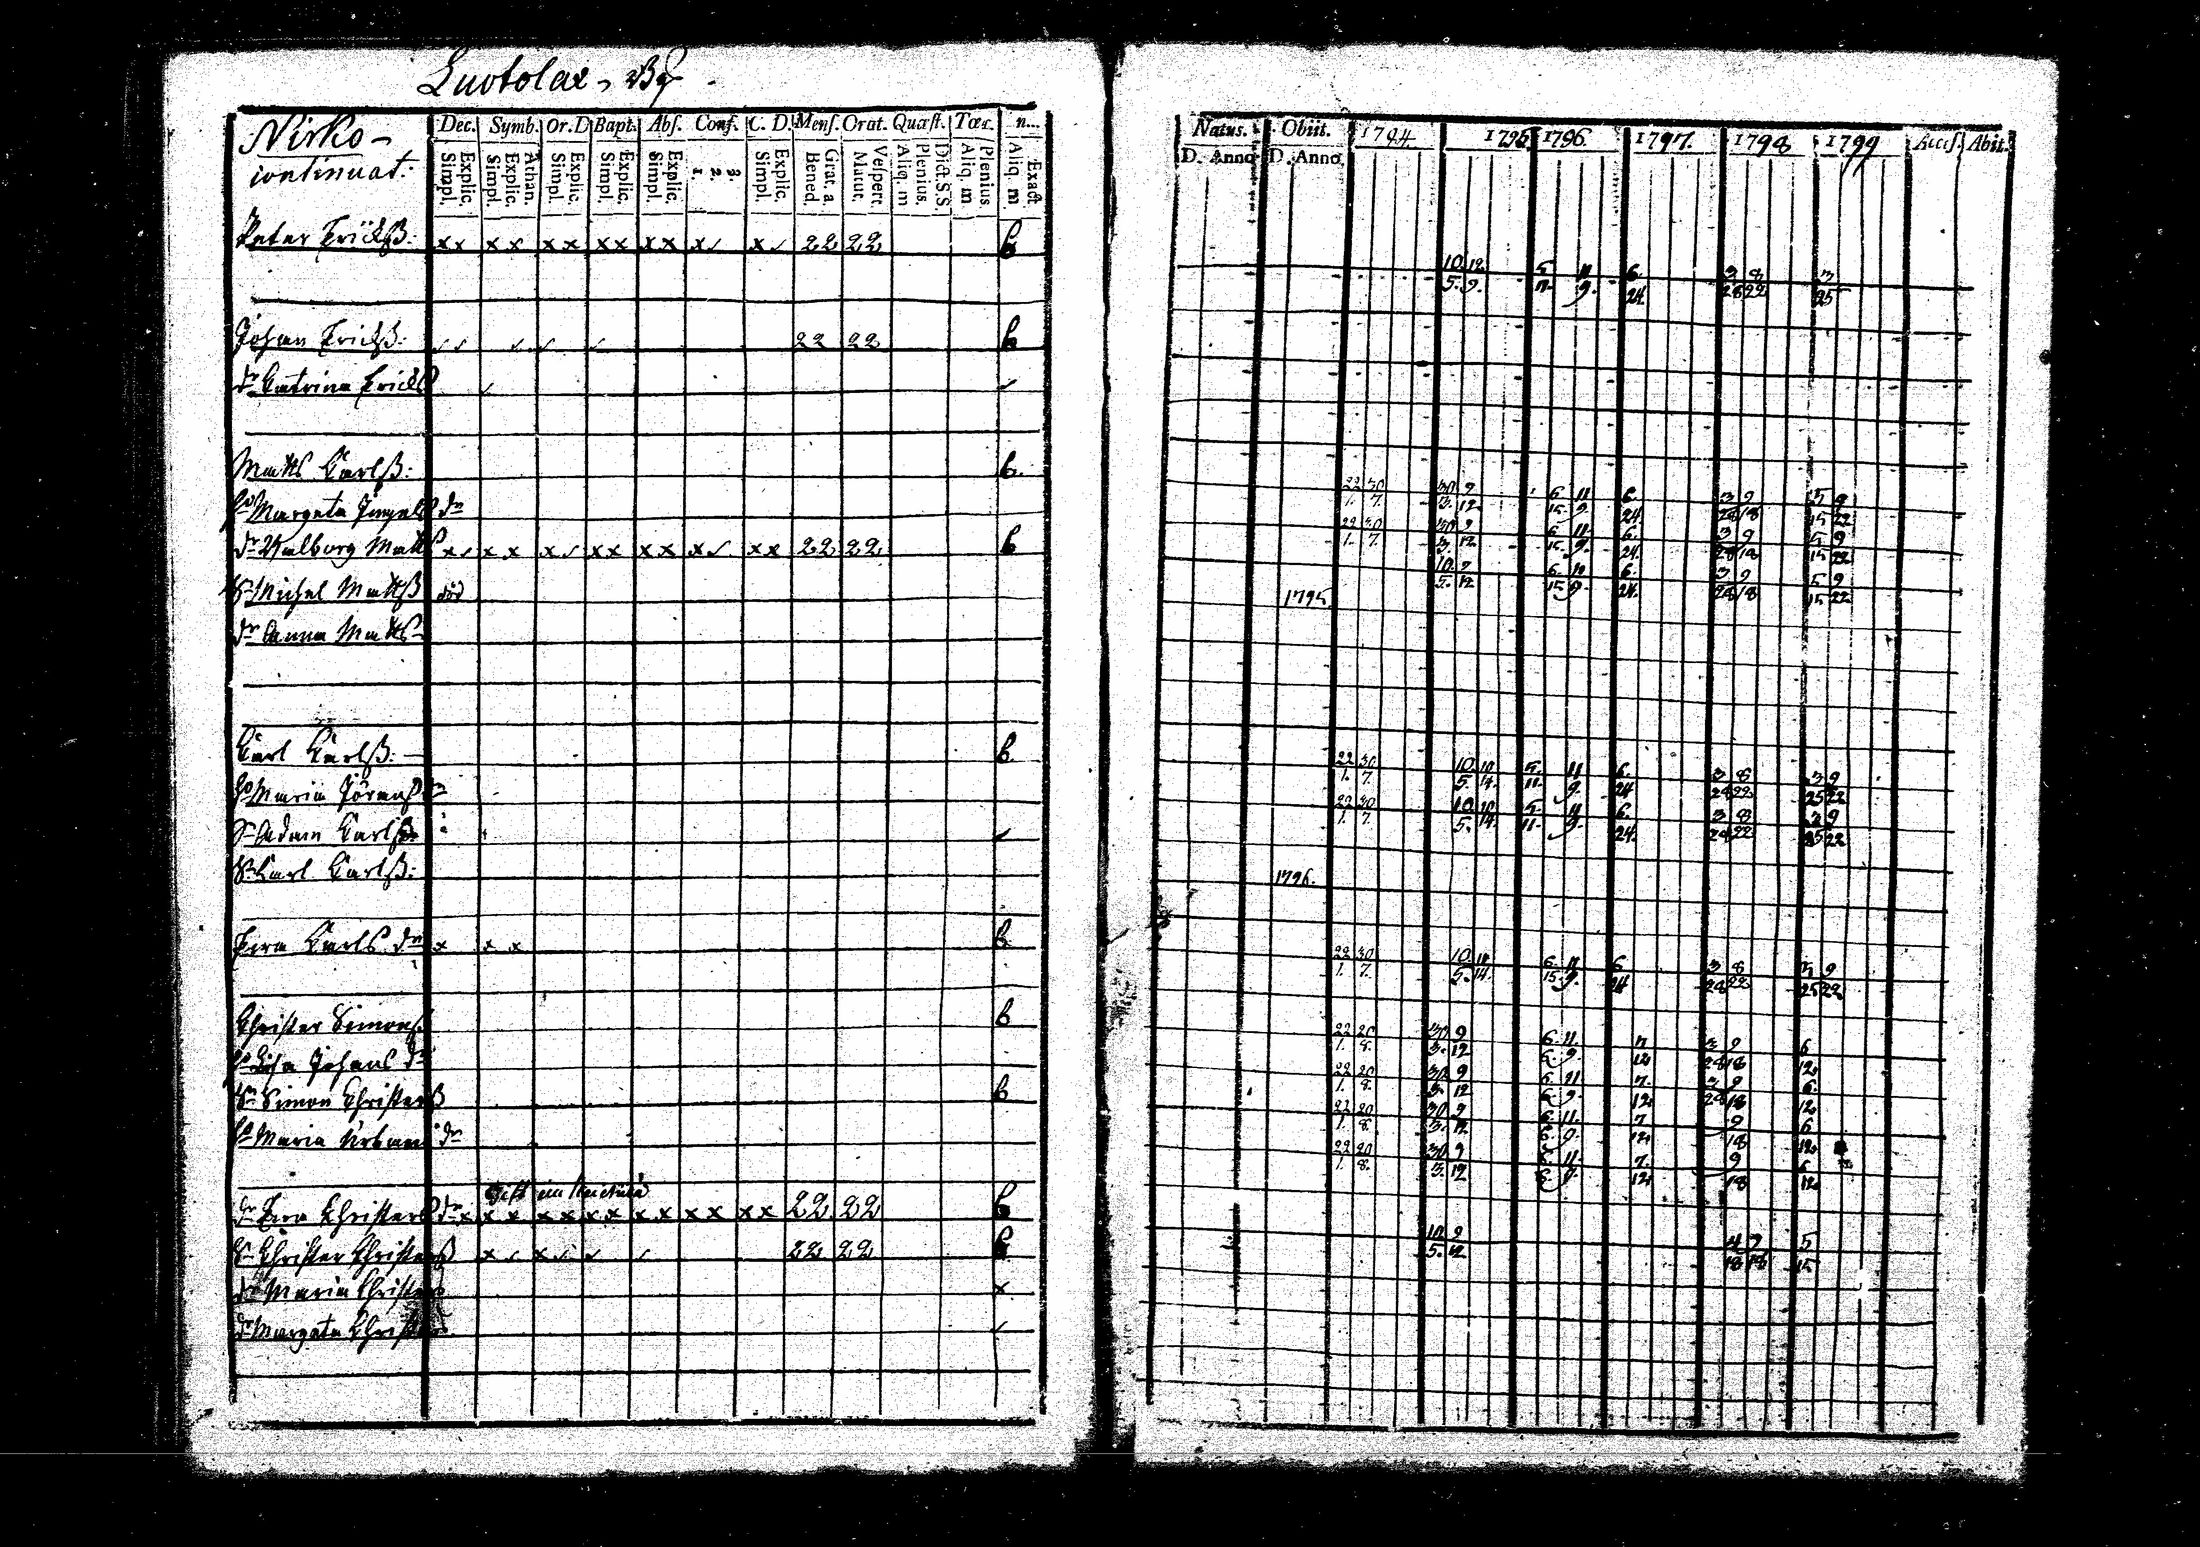 Luotolax By
Nirko
continuat:
Dec. Symb. Or. D Bapt. Abs. Conf. C. D. Mens. Orat. Quæst. Tær.
Explic. Simpl. Athan. Explic. Simpl. Explic. Simpl. Explic. Simpl. Explic. Simpl. 3. 2. 1. Explic. Simpl. Grat. a Bened. Vespert. Matut. Dict. S. S. Plenius. Aliq. m Plenius Aliq. m Exact Aliq. m
Petter Erickss: x x x x x x x x x x x x 22 22 b
Johan Ericks: 22 22 b
dr Catrina Ericks
Matts Carlss: b
hu Margeta dr
dr Walborg Matts x x x x x x x x x x x x 22 22 b
Sn Michel Mattss död
dr Anna Matts
Carl Carlss: b
hu Maria
Sn Adam Carlss
Sn Carl Carlss:
Carls dr x x x b
Christer Simonss b
hu Lisa Johans dr
Sn Simon Christerss b
hu Maria Urbans dr
Gift
dr Christers dr x x x x x x x x x x x x x x 22 22 b
Sn Christer Christerss x x 22 22 b
dr Maria Christers x
dr Margeta Christers
Natus. Obiit. 1794. 1795 1796. 1797. 1798 1799 Acces. Abit.
D. Anno D. Anno.
10 12 5 11 6. 3 8 3
5. 9. 11. 9. 24. 28 22 25
22 30 30 9 6 11 6. 3 9 5 9
1. 7. 3. 12 15 9. 24. 28 18 15 22
22 30 30 9 6 11 6. 3 9 5 9
1. 7. 3. 12 15 9. 24. 28 18 15 22
10. 9 6 11 6. 3 9 5 9
5. 12 15 9. 24. 28 18 15 22
1795.
22 30 10 10 5. 11 6. 3 8 3 9
1. 7. 5. 14. 11. 9. 24 28 22 25 22
22 30 10 10 5 11 6. 3 8 3 9
1. 7. 5. 14. 11. 9. 24. 28 22 25 22
1796.
22 30 10 10 6. 11 6 3 8 3 9
1. 7. 5. 14. 15. 9. 24 28 22 25 22
22 20 30 9 6. 11. 7 3 9 6
1. 8. 3. 12 6. 9. 12 28 18 12
22 20 30 9 6. 11 7. 3 9 6.
1. 8. 3. 12 6. 9. 12 28 18 12
22 20 30 9 6. 11. 7 9 6
1. 8. 3. 12. 6. 9. 12. 18 12
22 20 30 9 6. 11. 7. 9 6
1. 8. 3. 12 6. 9. 12 18 12
10. 9 4 9 5
5. 12 18 18 15